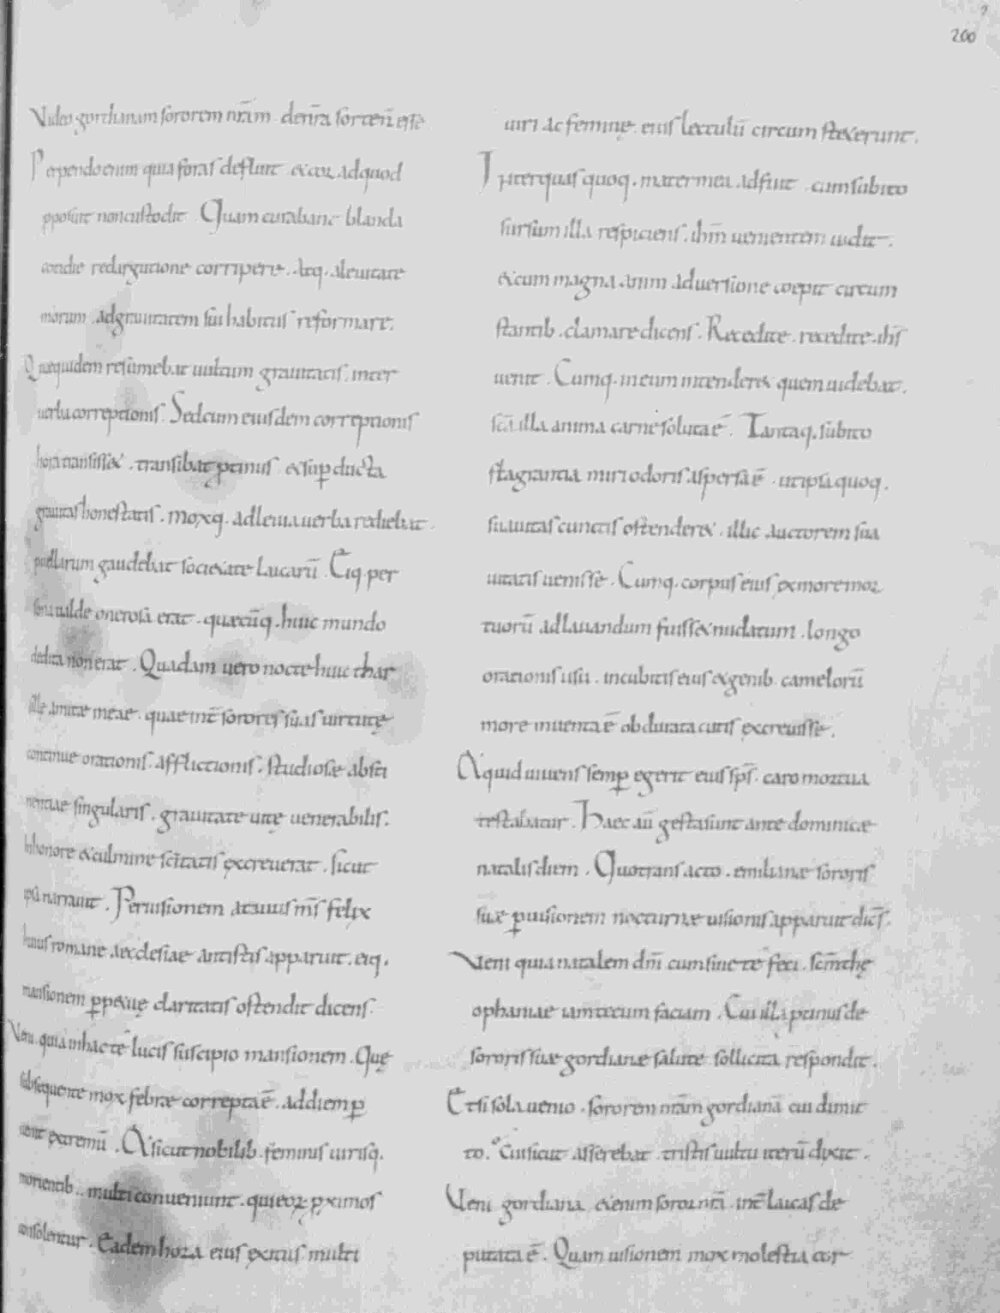 200
Video gordianam sororem nr̄am. denr̄a sorten̄ ēsse
Perpendo enim quia foras defluit. & cor, ad quod
pposuit non custodit. Quam curabant blanda
cotidie redarguitione corripere. atq. a levitate
morum. ad gravitatem sui habitus reformare.
Quae quidem resumebat vultum gravitatis, inter
verba correptionis. Sed cum eiusdem correptionis
hora transiss&. transibat ptinus & sup ducta
gravitas honestatis. moxq. ad levia verba rediebat.
puellarum gaudebat societate laicarū. Eiq. per
sona valde onerosa erat. quaecūq. huic mundo
dedita non erat. Quadam vero nocte huic thar
sille amitae meae. quae int̄ sorores suas virtute
continue orationis. afflictionis. studiosae absti
nentiae singularis. gravitate vitę venerabilis.
inhonore & culmine sc̄itatis excreverat. sicut
ipsa narravit. Per visionem atavus m̄s felix
huius romane aecclesiae antistis apparuit. eiq.
mansionem ppetuę claritatis ostendit dicens.
Veni. quia in hac te lucis suscipio mansionem. Quę
subsequente mox febre correpta ē. ad diem p
venit extremū. & sicut nobilib. feminis virisq.
morientib. multi conveniunt. qui eoꝝ pximos
consolentur. Eadem hora eius exitus multi
viri ac feminę. eius lectulū circum steterunt.
Inter quas quoq. mater mea adfuit. cum subito
sursum illa respiciens. ihm̄ venientem vidit.
& cum magna anim adversione coepit circum
stantib. clamare dicens. Recedite. recedite. ihs̄
venit. Cumq. in eum intender& quem videbat.
sc̄a illa anima carne soluta ē. Tantaq. subito
flagrantia miri odoris aspersa ē. ut ipsa quoq.
suavitas cunctis ostender&. illic auctorem sua
vitatis venisse. Cumq. corpus eius ex more moꝝ
tuorū ad lavandum fuiss& nudatum. longo
orationis usu. in cubitis eius & genib. camelorū
more inventa ē obdurata cutis excrevisse.
& quid vivens semp egerit eius sps̄. caro mortua
testabatur. Haec aū gesta sunt ante dominicae
natalis diem. Quo transacto. emilianae sororis
suae p visionem nocturnae visionis apparuit dic̄s.
Veni quia natalem dn̄i cum sine te feci. sc̄m thę
ophaniae iam tecum faciam. Cui illa ptinus de
sororis suae gordianae salute sollicita respondit.
Et si sola venio. sororem nr̄am gordianā cui dimit
to. Cui sicut asserebat. tristis vultu iterū dixit.
Veni gordiana &enim soror nr̄a. int̄ laicas de
putata ē. Quam visionem mox molestia cor